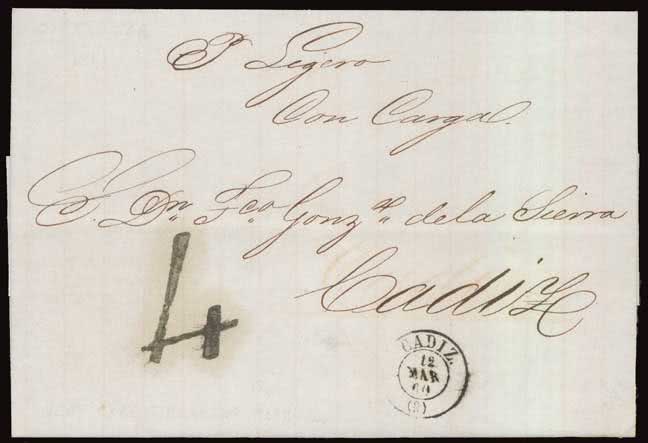 P. Ligero
Con Carga.
S. Dn. Fco Gonzal. de la Sierra
Cadiz
4
CADIZ.
12
MAR
60
(2)